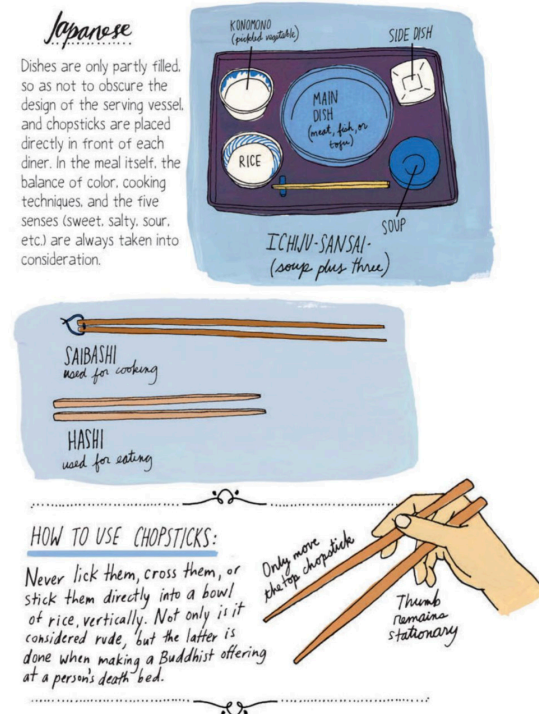 Japanese
Dishes are only partly filled,
so as not to obscure the
design of the serving vessel,
and chopsticks are placed
directly in front of each
diner. In the meal itself, the
balance of color, cooking
techniques, and the five
senses (sweet, salty, sour,
etc.) are always taken into
consideration.
KONOMONO
(pickled vegetable)
SIDE DISH
MAIN
DISH
(meat, fish, or
tofu)
RICE
SOUP
ICHIJU-SANSAI-
(soup plus three)
SAIBASHI
used for cooking
HASHI
used for eating
HOW TO USE CHOPSTICKS:
Never lick them, cross them, or
stick them directly into a bowl
of rice, vertically. Not only is it
considered rude, but the latter is
done when making a Buddhist offering
at a person's death bed.
Only move
the top chopstick
Thumb
remains
stationary